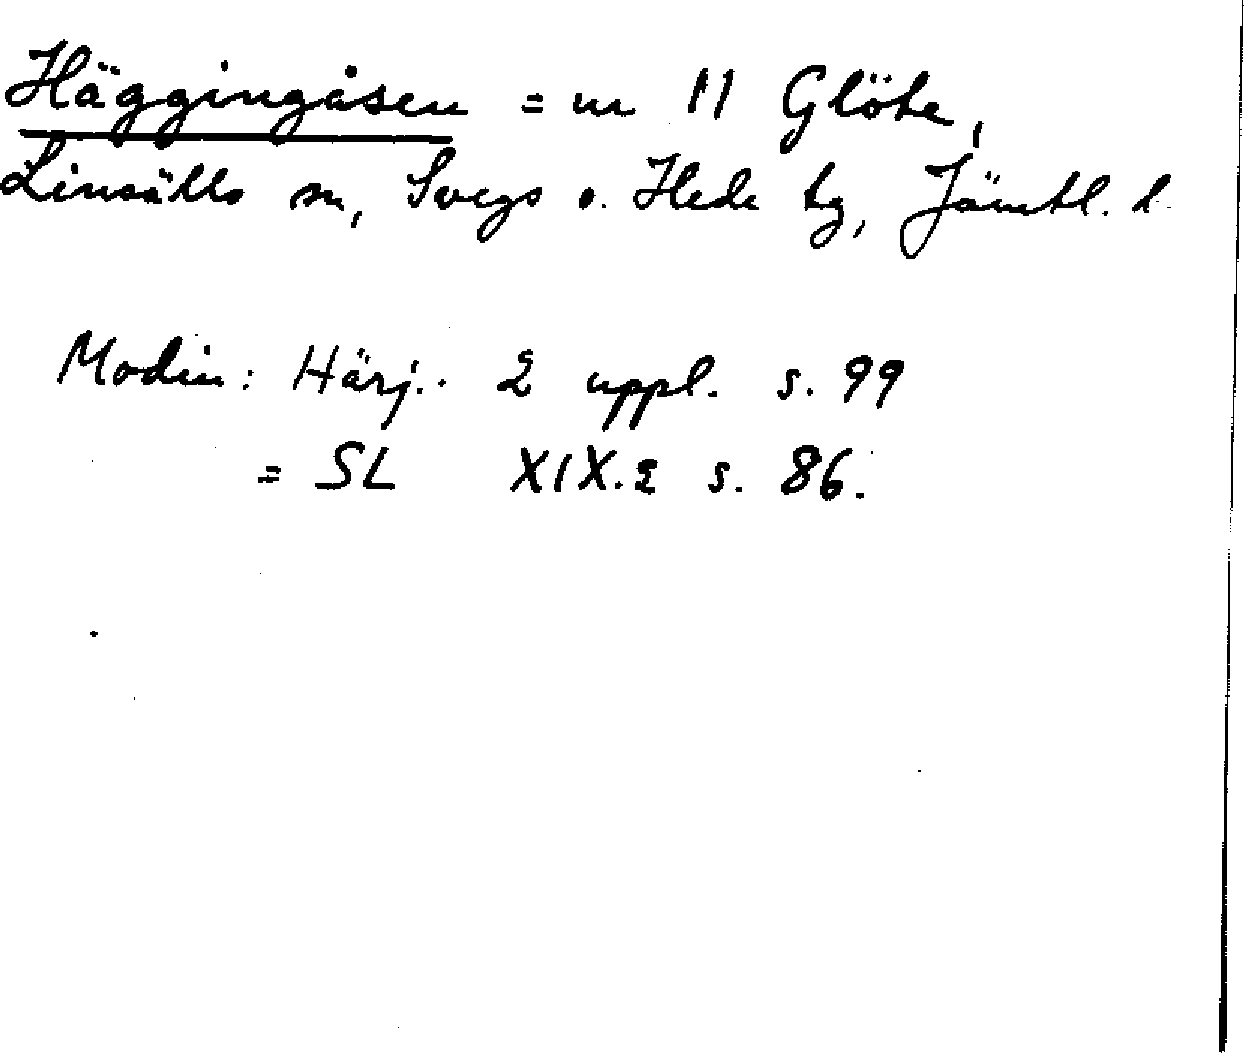 Häggingåsen = nr 11 Glöte,
Linsälls sn, Svegs o. Hede tg, Jämtl. l.
Modin: Härj.. 2 uppl. s. 99
= SL XIX.2 s. 86.